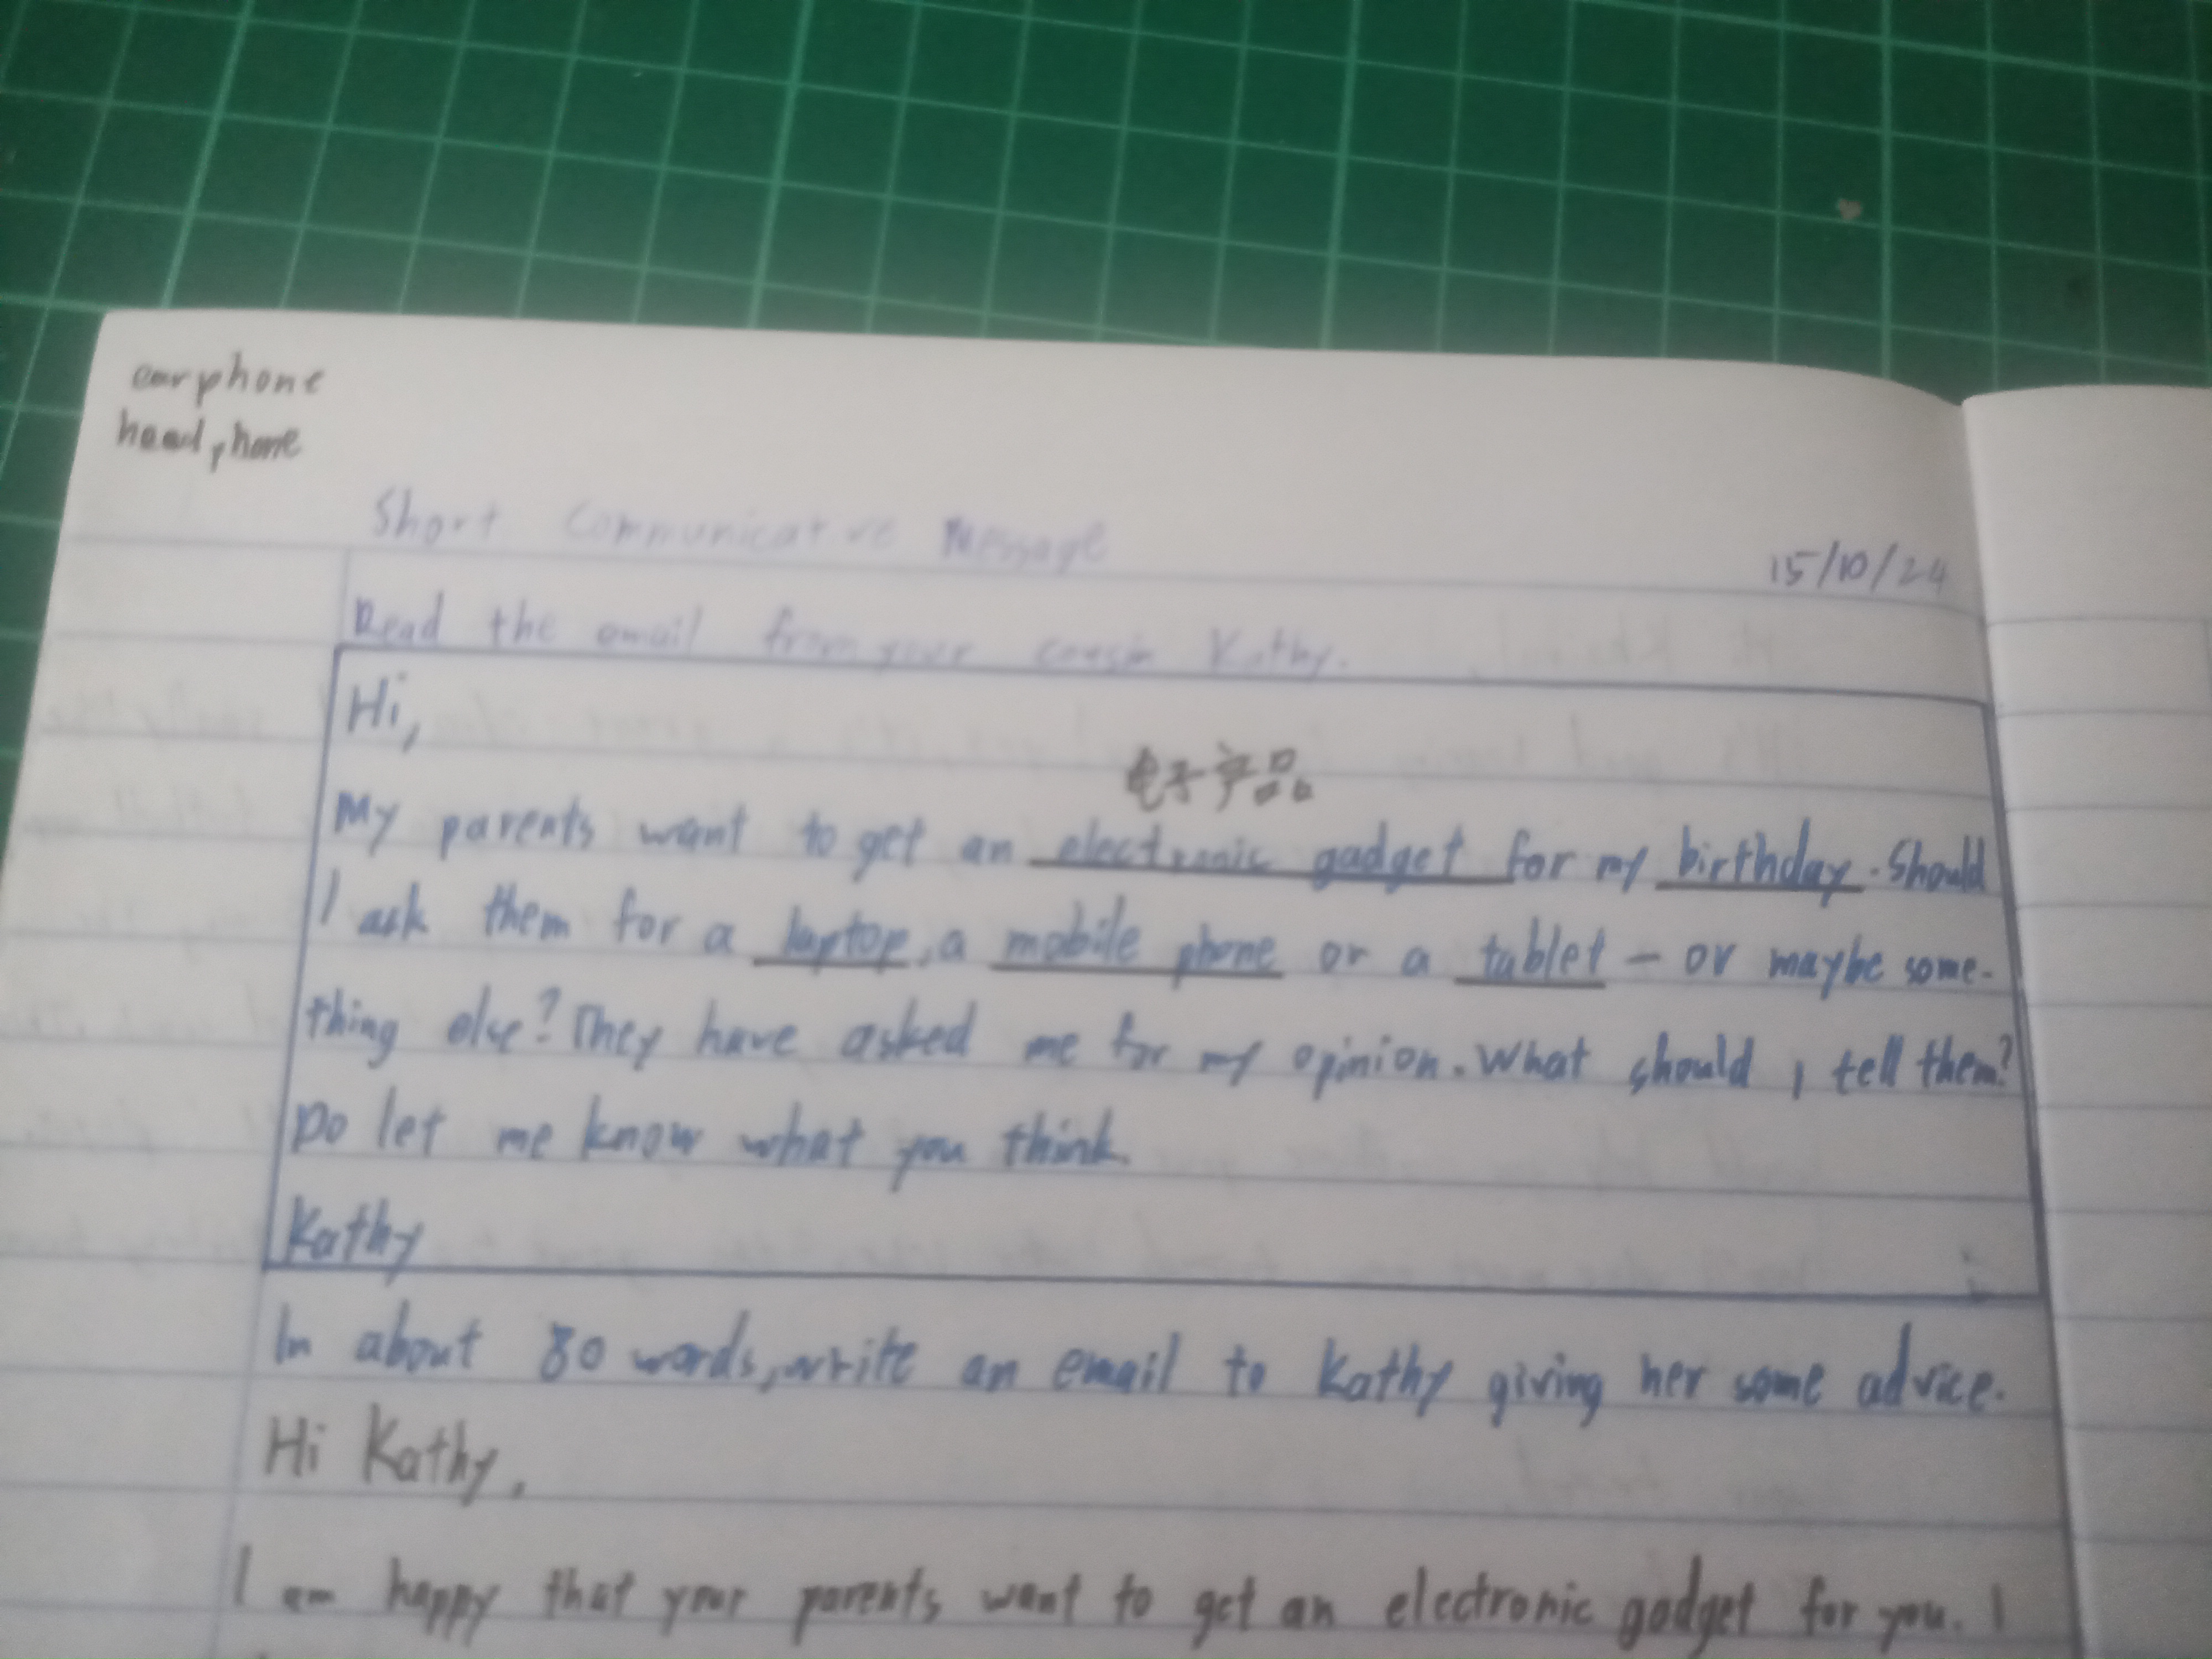 earphone
headphone
Short Communicative Message
15/10/24
Read the email from your cousin Kathy.
Hi,
电子产品
My parents want to get an electronic gadget for my birthday. Should
I ask them for a laptop, a mobile phone or a tablet - or maybe some-
thing else? They have asked me for my opinion. What should I tell them?
Do let me know what you think.
Kathy
In about 80 words, write an email to Kathy giving her some advice.
Hi Kathy,
I am happy that your parents want to get an electronic gadget for you. I